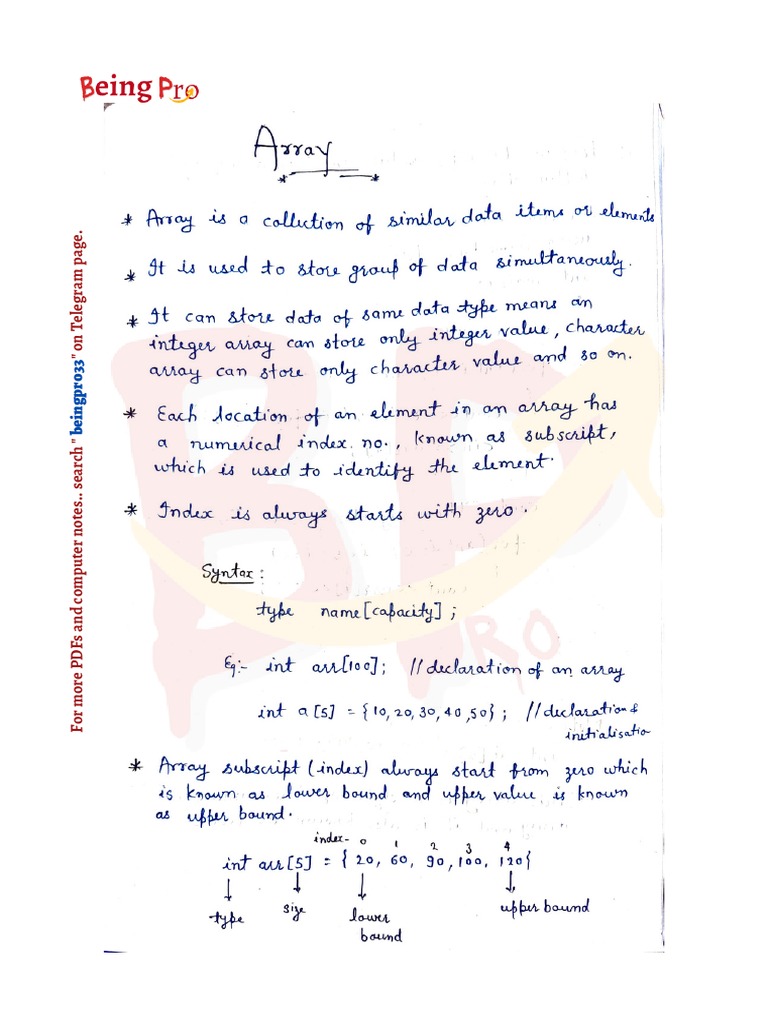 Being Pro
Array
* Array is a collection of similar data items or elements
* It is used to store group of data simultaneously.
* It can store data of same data type means an
integer array can store only integer value, character
array can store only character value and so on.
* Each location of an element in an array has
a numerical index no., known as subscript,
which is used to identify the element.
* Index is always starts with zero.
Syntax :
type name[capacity] ;
Eg:- int arr[100]; //declaration of an array
int a[5] = {10, 20, 30, 40, 50} ; //declaration &
initialisatio
* Array subscript (index) always start from zero which
is known as lower bound and upper value is known
as upper bound.
index- 0 1 2 3 4
int arr[5] = { 20, 60, 90, 100, 120}
type size lower upper bound
bound
For more PDFs and computer notes.. search " beingpro33" on Telegram page.
BP
PRO